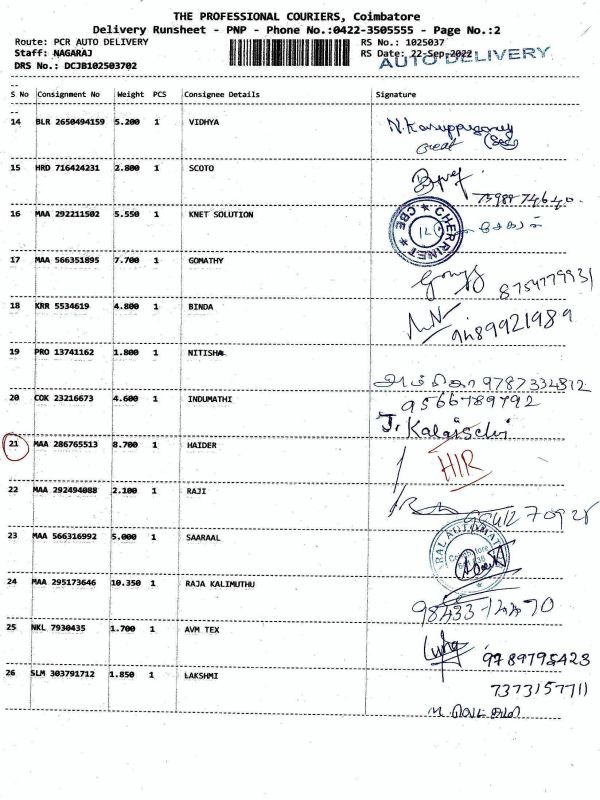 THE PROFESSIONAL COURIERS, Coimbatore
Delivery Runsheet - PNP - Phone No.:0422-3505555 - Page No.:2
Route: PCR AUTO DELIVERY RS No.: 1025037
Staff: NAGARAJ RS Date: 22-Sep-2022
AUTO DELIVERY
DRS No.: DCJB102503702
S No Consignment No Weight PCS Consignee Details Signature
14 BLR 2650494159 5.200 1 VIDHYA
15 HRD 716424231 2.800 1 SCOTO
16 MAA 292211502 5.550 1 KNET SOLUTION
CHERRINET
CBE
17 MAA 566351895 7.700 1 GOMATHY
8754779931
18 KRR 5534619 4.800 1 BINDA
9489921989
19 PRO 13741162 1.800 1 NITISHA
9787334812
20 COK 23216673 4.600 1 INDUMATHI
9566789792
21 MAA 286765513 8.700 1 HAIDER
HIR
22 MAA 292494088 2.100 1 RAJI
23 MAA 566316992 5.000 1 SAARAAL
24 MAA 295173646 10.350 1 RAJA KALIMUTHU
25 NKL 7930435 1.700 1 AVM TEX
9789795423
26 SLM 303791712 1.850 1 LAKSHMI
7373157711